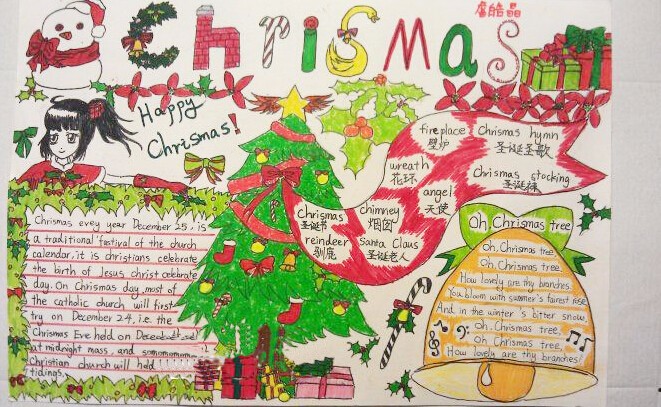 Chrismas
卢皓晶
Happy
Chrismas!
fireplace
壁炉
Chrismas hymn
圣诞圣歌
wreath
花环
angel
天使
Chrismas stocking
圣诞袜
Chrismas
圣诞书
chimney
烟囱
reindeer
驯鹿
Santa Claus
圣诞老人
Chrismas evey year December 25, is
a traditional "fastival of the church
calendar, it is christians celebrate
the birth of Jesus christ celebrate
day. On Chrismas day, most of
the catholic church will first
try on December 24, i.e. the
Chrismas Eve held on
at midnight mass, and
Christian church will hold
tidings.
Oh, Chrismas tree
Oh, Chrismas tree
Oh, Chrismas tree,
How lovely are thy branches.
You bloom with summer's fairest rise,
And in the winter's bitter snow.
Oh, Chrismas tree,
Oh, Chrismas tree,
How lovely are thy branches!